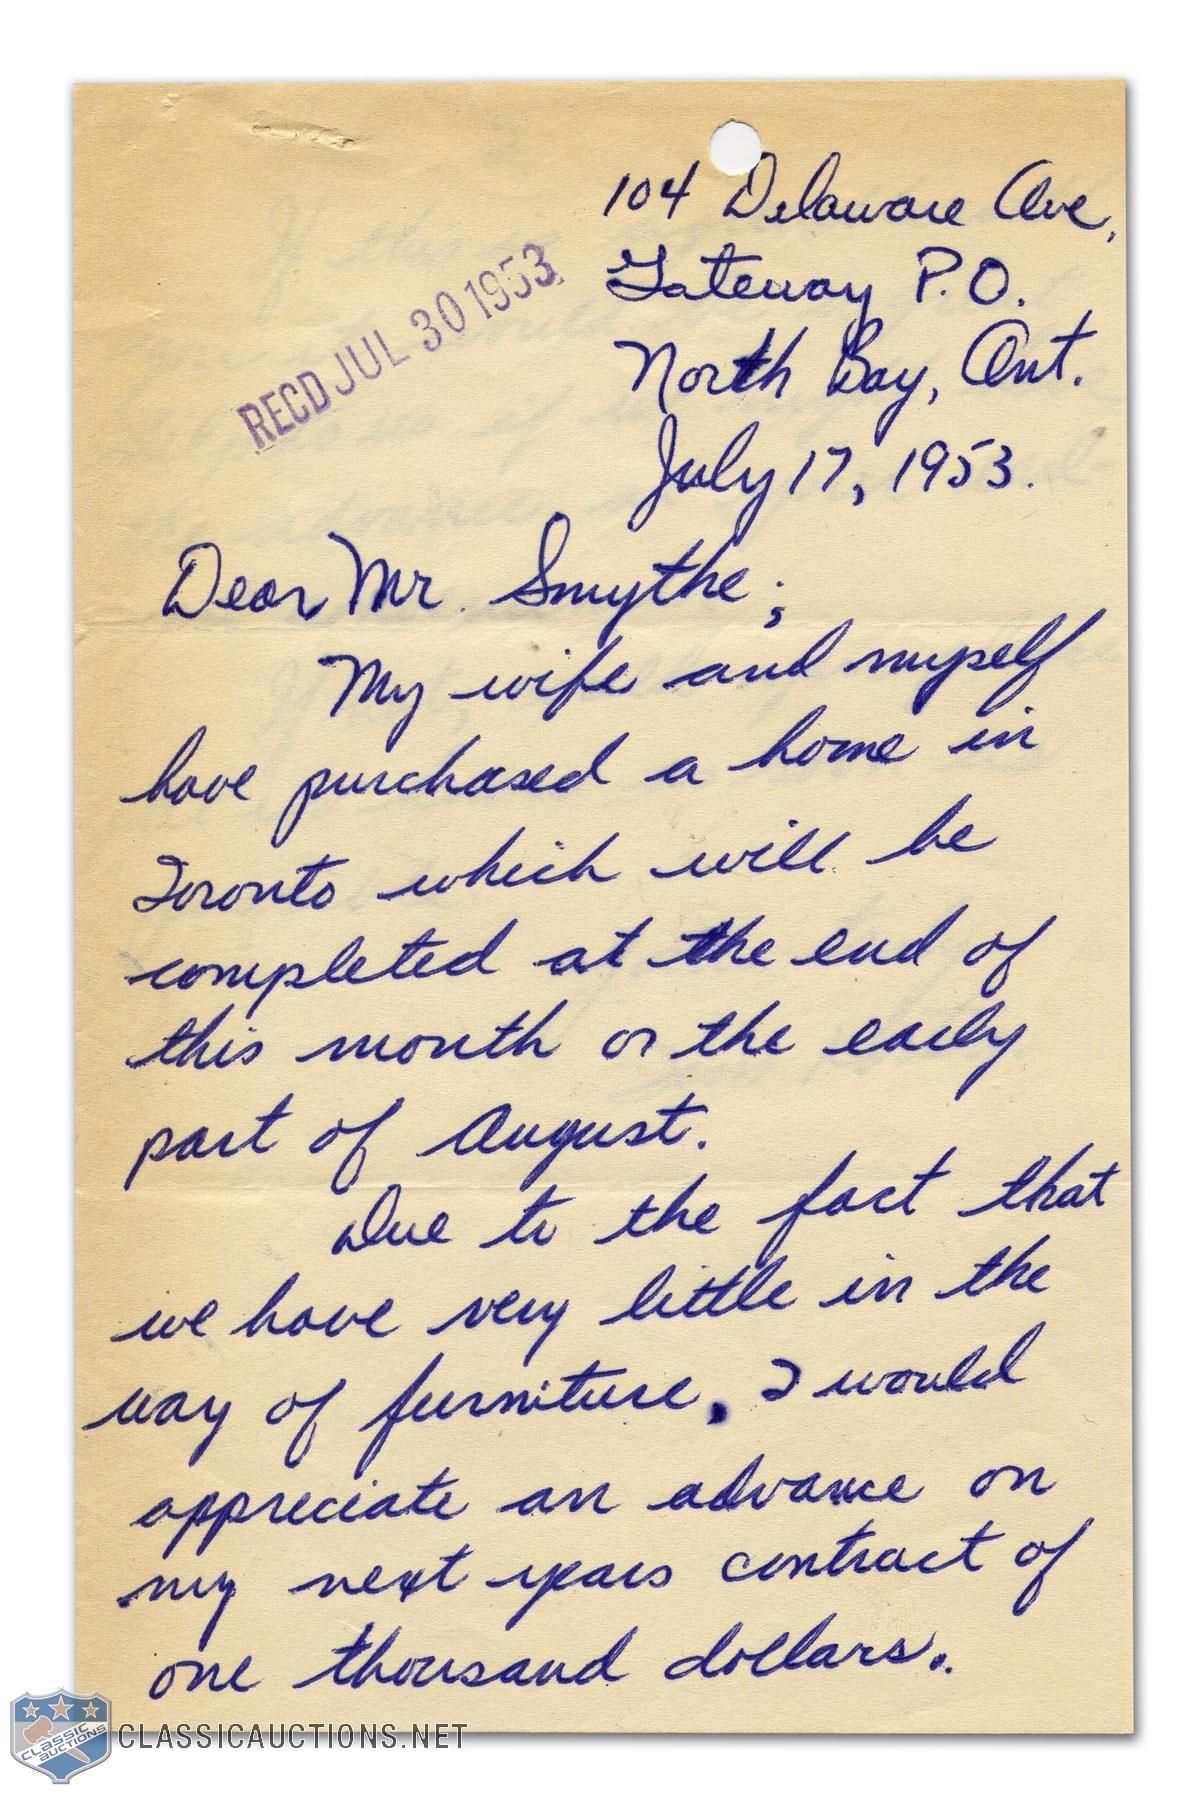 104 Delaware Ave,
Gateway P.O.
North Bay, Ont.
July 17, 1953.
RECD JUL 30 1953
Dear Mr. Smythe;
My wife and myself
have purchased a home in
Toronto which will be
completed at the end of
this month or the early
part of August.
Due to the fact that
we have very little in the
way of furniture, I would
appreciate an advance on
my next years contract of
one thousand dollars.
CLASSIC
AUCTIONS
CLASSICAUCTIONS.NET